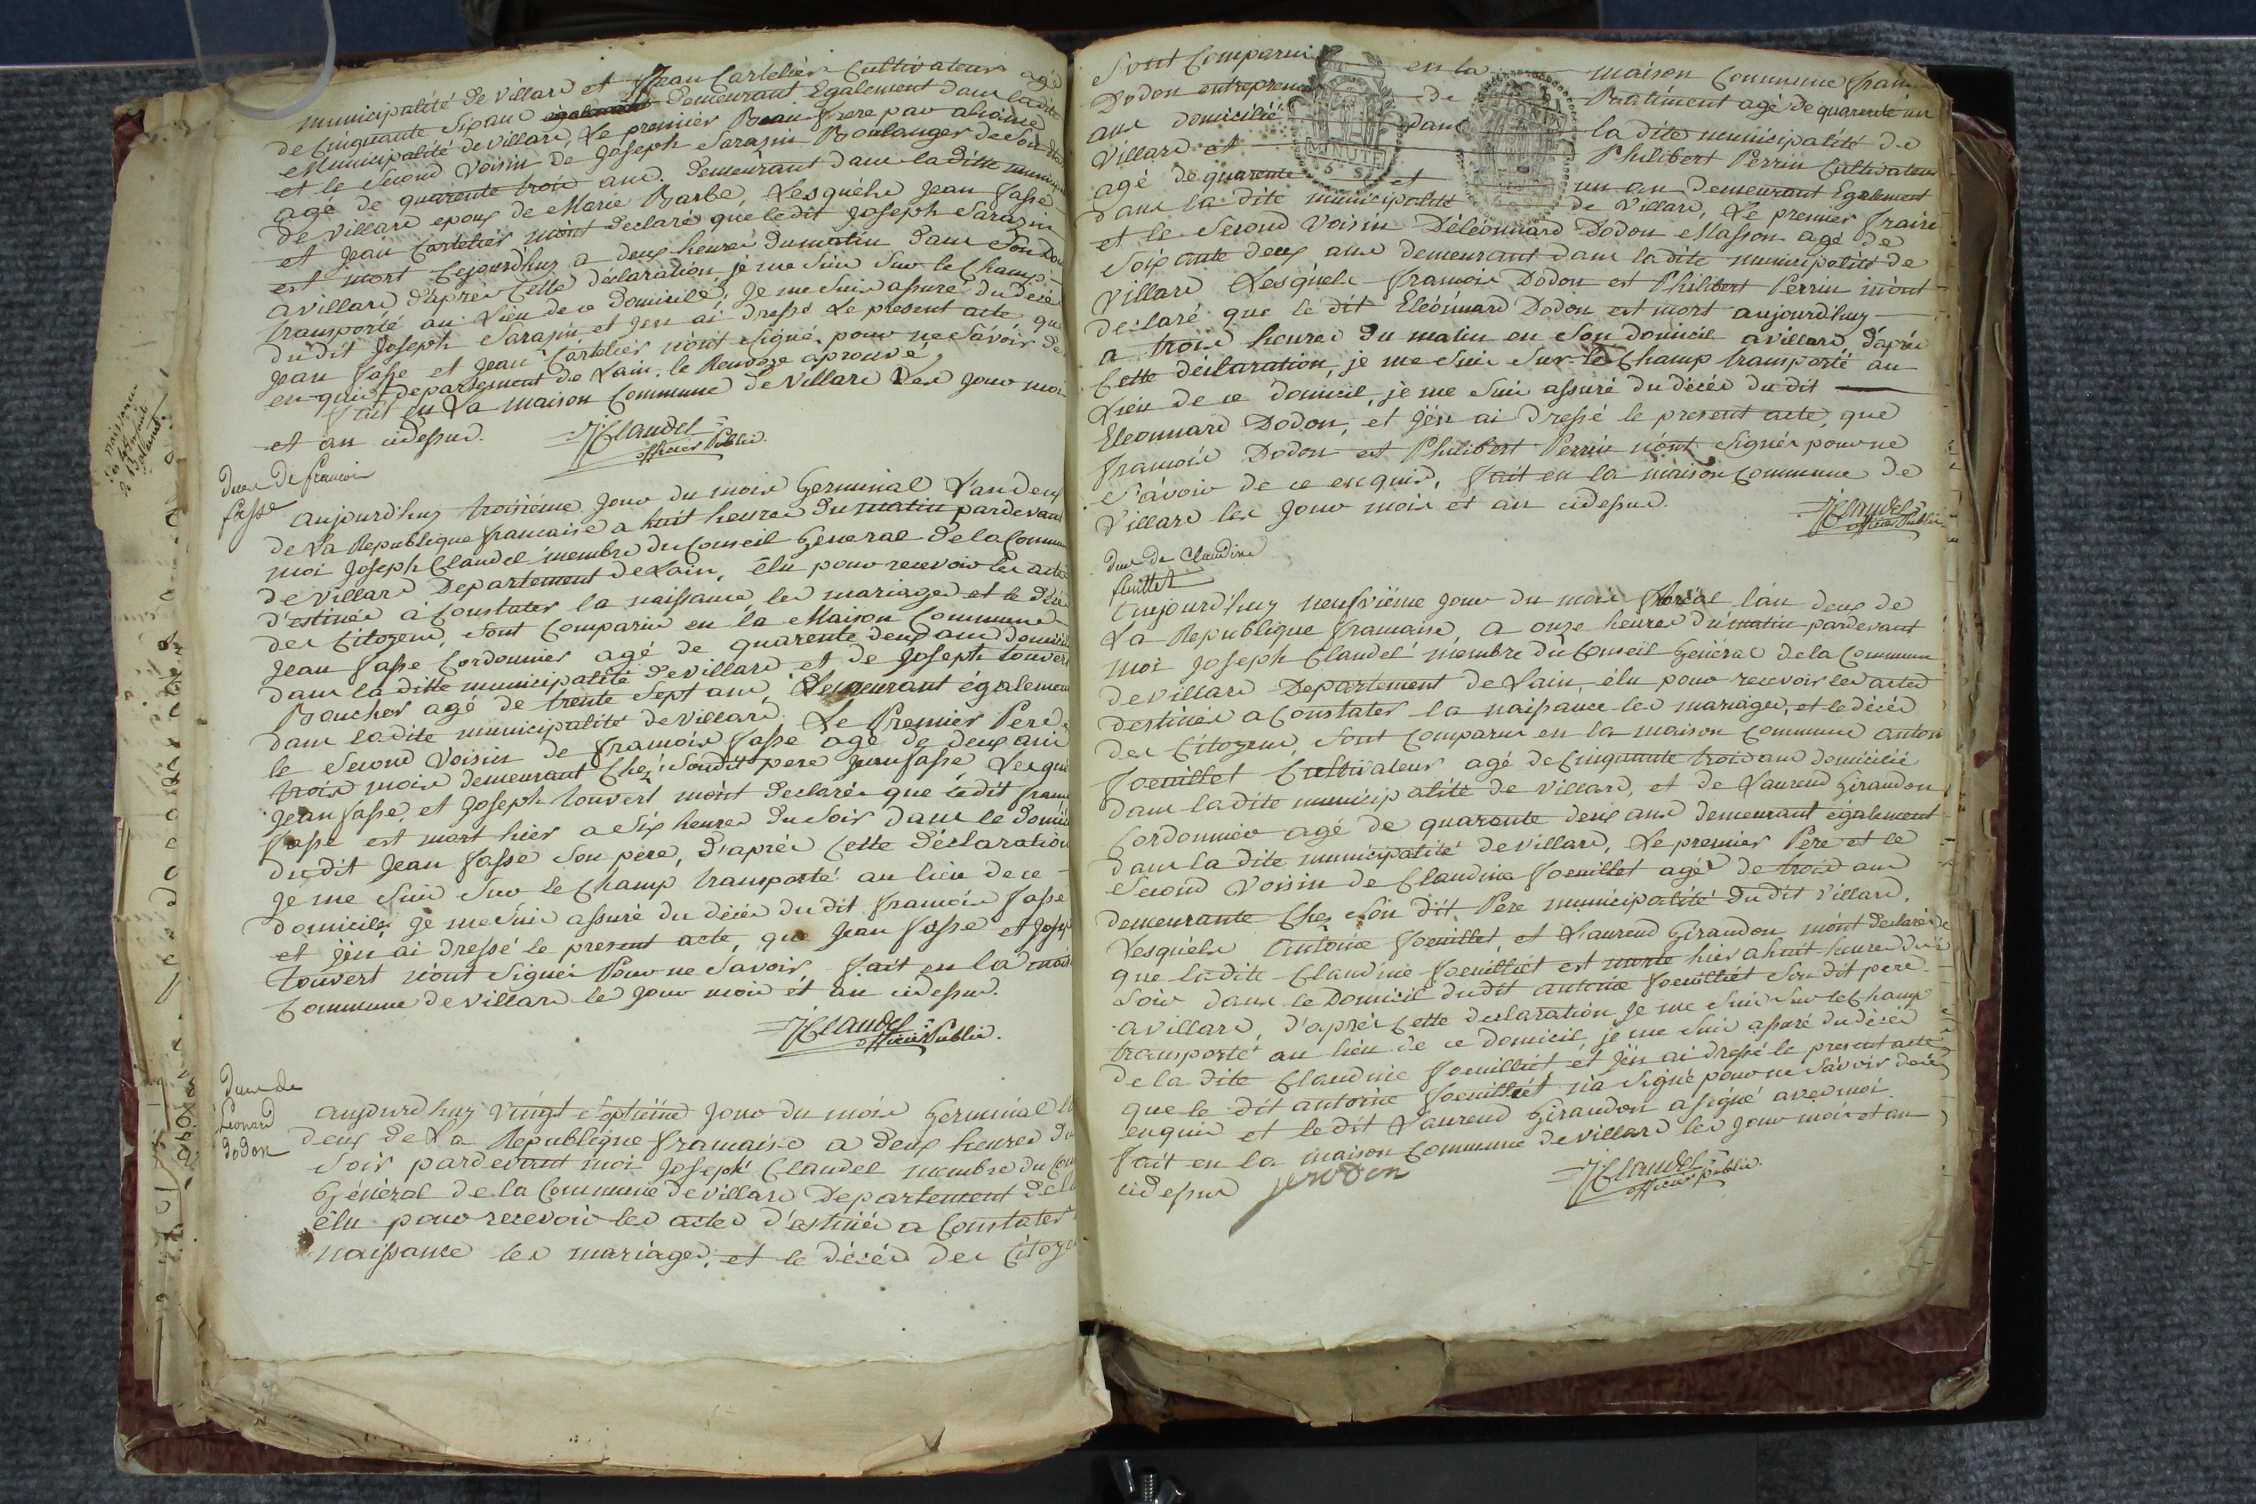 municipalité de Villard et Jean Cartelier Cultivateur agé
de Cinquante Six ans demeurant Egalement dans ladite
Municipalité de Villard, Le premier Beau frere par aliance
et le Second Voisin de Joseph Sarasin Boulanger de Son
agé de quarente trois ans. demeurant dans laditte
de Villard epoux de Marie Barbe, Lesquels Jean fasse
et Jean Cartelier m'ont declaré que ledit Joseph Sarasin
est mort Cejourdhuy a deux heures dumatin dans Son
a villard d'après Cette déclaration je me Suis Sur le Champ
transporté au Lieu de ce domicile, Je me Suis assuré du
dudit Joseph Sarasin et Jen ai Dressé Le present acte que
Jean fasse et Jean Cartelier n'ont Signé pour ne Savoir de
en quis Departement de Lain. le Renvoye aprouvé,
fait en La maison Commune de Villard Les Jour mois
et an cidessus. J Claudel
officier Public.
Dces de francois
fasse
aujourd'huy troisième Jour du mois Germinal L'an deux
de La Republique francaise a huit heures du matin pardevant
moi Joseph Claudel membre du Conseil General de la
de Villard Departement de Lain, élu pour recevoir les
d'estinés à Constater la naissance les mariages et le
des Citoyens, Sont Comparus en la Maison Commune
Jean fasse Cordonnier agé de quarente deux ans
dans la ditte municipalité de Villard et de Joseph touvert
Boucher agé de trente Sept ans, Demeurant également
dans ladite municipalité de villard. Le Premier Pere
le Second Voisin de francois fasse agé de deux ans
trois mois demeurant Chez Sondit pere Jean fasse Les
Jean fasse, et Joseph touvert m'ont declarés que ledit
fasse est mort hier a Six heures du Soir dans le
dudit Jean fasse Son pere, d'après Cette déclaration
Je me Suis Sur le Champ transporté au lieu de ce
domicile, Je me Suis assuré du décès dudit francois fasse
et J'en ai dressé le present acte, que Jean fasse et
touvert n'ont Signés Pour ne Savoir, fait en la
Commune de Villard le Jour mois et an cidessus.
J Claudel
officier Public.
Dces de
Léonard
Dodon
aujourdhuy Vingt Septième Jour du mois Germinal
deux de La Republique francaise a deux heures du
Soir pardevant moi Joseph Claudel membre du
Général de la Commune de Villard Departement de
élu pour recevoir les actes d'estinés a Constater
naissance les mariages, et le décès des
Sont Comparus en la maison Commune
Dodon entrepreneur de Batiment agé de quarente un
ans domicilié dans la dite municipalité de
Villard et Philibert Perrin Cultivateur
MINUTE
agé de quarente et un an demeurant Egalement
dans la dite municipalité de Villard, Le premier
et le Second Voisin De Léonnard Dodon Masson agé de
Soix ante deux ans demeurant dans ladite municipalité de
Villard Lesquels francois Dodon et Philibert Perrin m'ont
déclaré que le dit Eléonnard Dodon est mort aujourd'huy
a trois heures du matin en Son domicil a villard, d'après
Cette déclaration, je me Suis Sur le Champ transporté au
Lieu de ce domicil, je me Suis assuré du décès du dit
Eleonnard Dodon, et J'en ai Dressé le present acte, que
francois Dodon et Philibert Perrin n'ont Signés pour ne
Savoir de ce enquis, fait en la maison Commune de
Villard les Jour mois et an cidessus.
J Claudel
officier Public
dces de Claudine
fuillet
Aujourd'huy neufvième Jour du mois floréal l'an deux de
La Republique francaise, a onze heures du matin pardevant
moi Joseph Claudel membre du Conseil Général de la Commune
de villard Departement de Lain, élu pour recevoir les actes
destinés a Constater la naissance les mariages, et le décès
des Citoyens, Sont Comparus en la maison Commune
foeuillet Cultivateur agé de Cinquante trois ans domicilié
dans ladite municipalité de Villard, et de Laurend Girandon
Cordonnier agé de quarante deux ans demeurant également
dans la dite municipalité de villard, Le premier Pere et le
Second Voisin de Claudine foeuillet agée de trois ans
demeurante Chez Son dit Pere municipalité du dit Villard,
Lesquels Antoine foeuillet, et Laurend Girandon m'ont declarés
que ladite Claudine foeuilliet est morte hier a huit heures du
Soir dans le Domicil dudit antoine foeuilliet Son dit pere
a villard, d'après Cette declaration Je me Suis Sur le Champ
transporté au lieu de ce domicil, je me Suis assuré du décès
de la dite Claudine foeuilliet et J'en ai dressé le present acte
que le dit antoine foeuilliet n'a Signé pour ne Savoir de ce
enquis et ledit Laurend Girandon a signé avec moi
fait en la maison Commune de villard les Jour mois et an
cidessus
J Claudel
officier public.